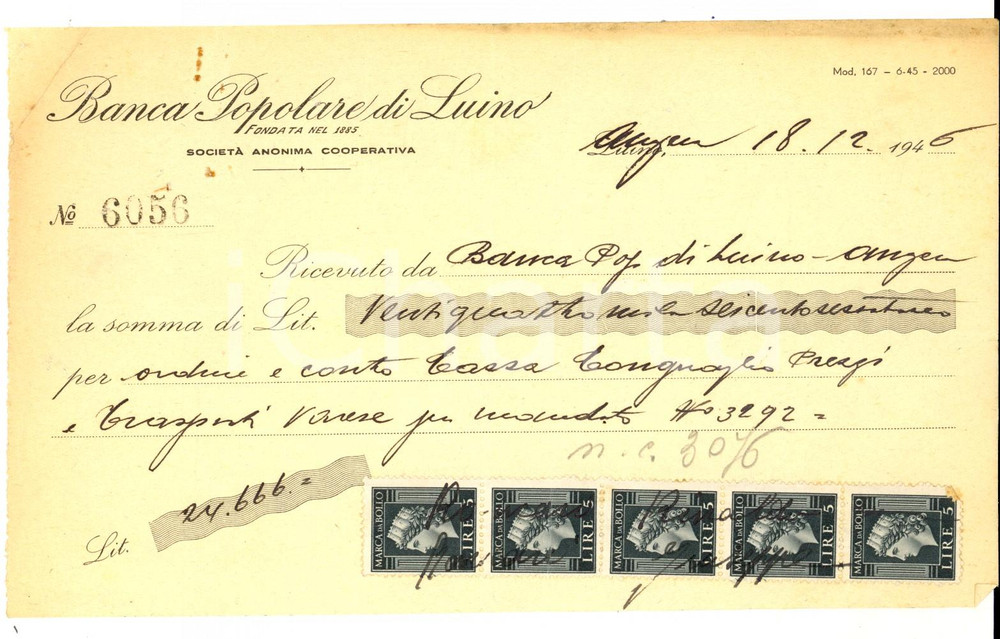 Mod. 167 – 6-45 - 2000
Banca Popolare di Luino
FONDATA NEL 1885
SOCIETÀ ANONIMA COOPERATIVA
Luino, Angera 18.12. 1946
No 6056
Ricevuto da Banca Pop di Luino - Angera
la somma di Lit. Ventiquattromilaseicentosessantasei
per ordine e conto Cassa Conguaglio Prezzi
e Trasporti Varese per mandato No 3292 =
n. c. 3076
Lit. 24.666.=
MARCA DA BOLLO LIRE 5
MARCA DA BOLLO LIRE 5
MARCA DA BOLLO LIRE 5
MARCA DA BOLLO LIRE 5
MARCA DA BOLLO LIRE 5
Giuseppe
iCharta